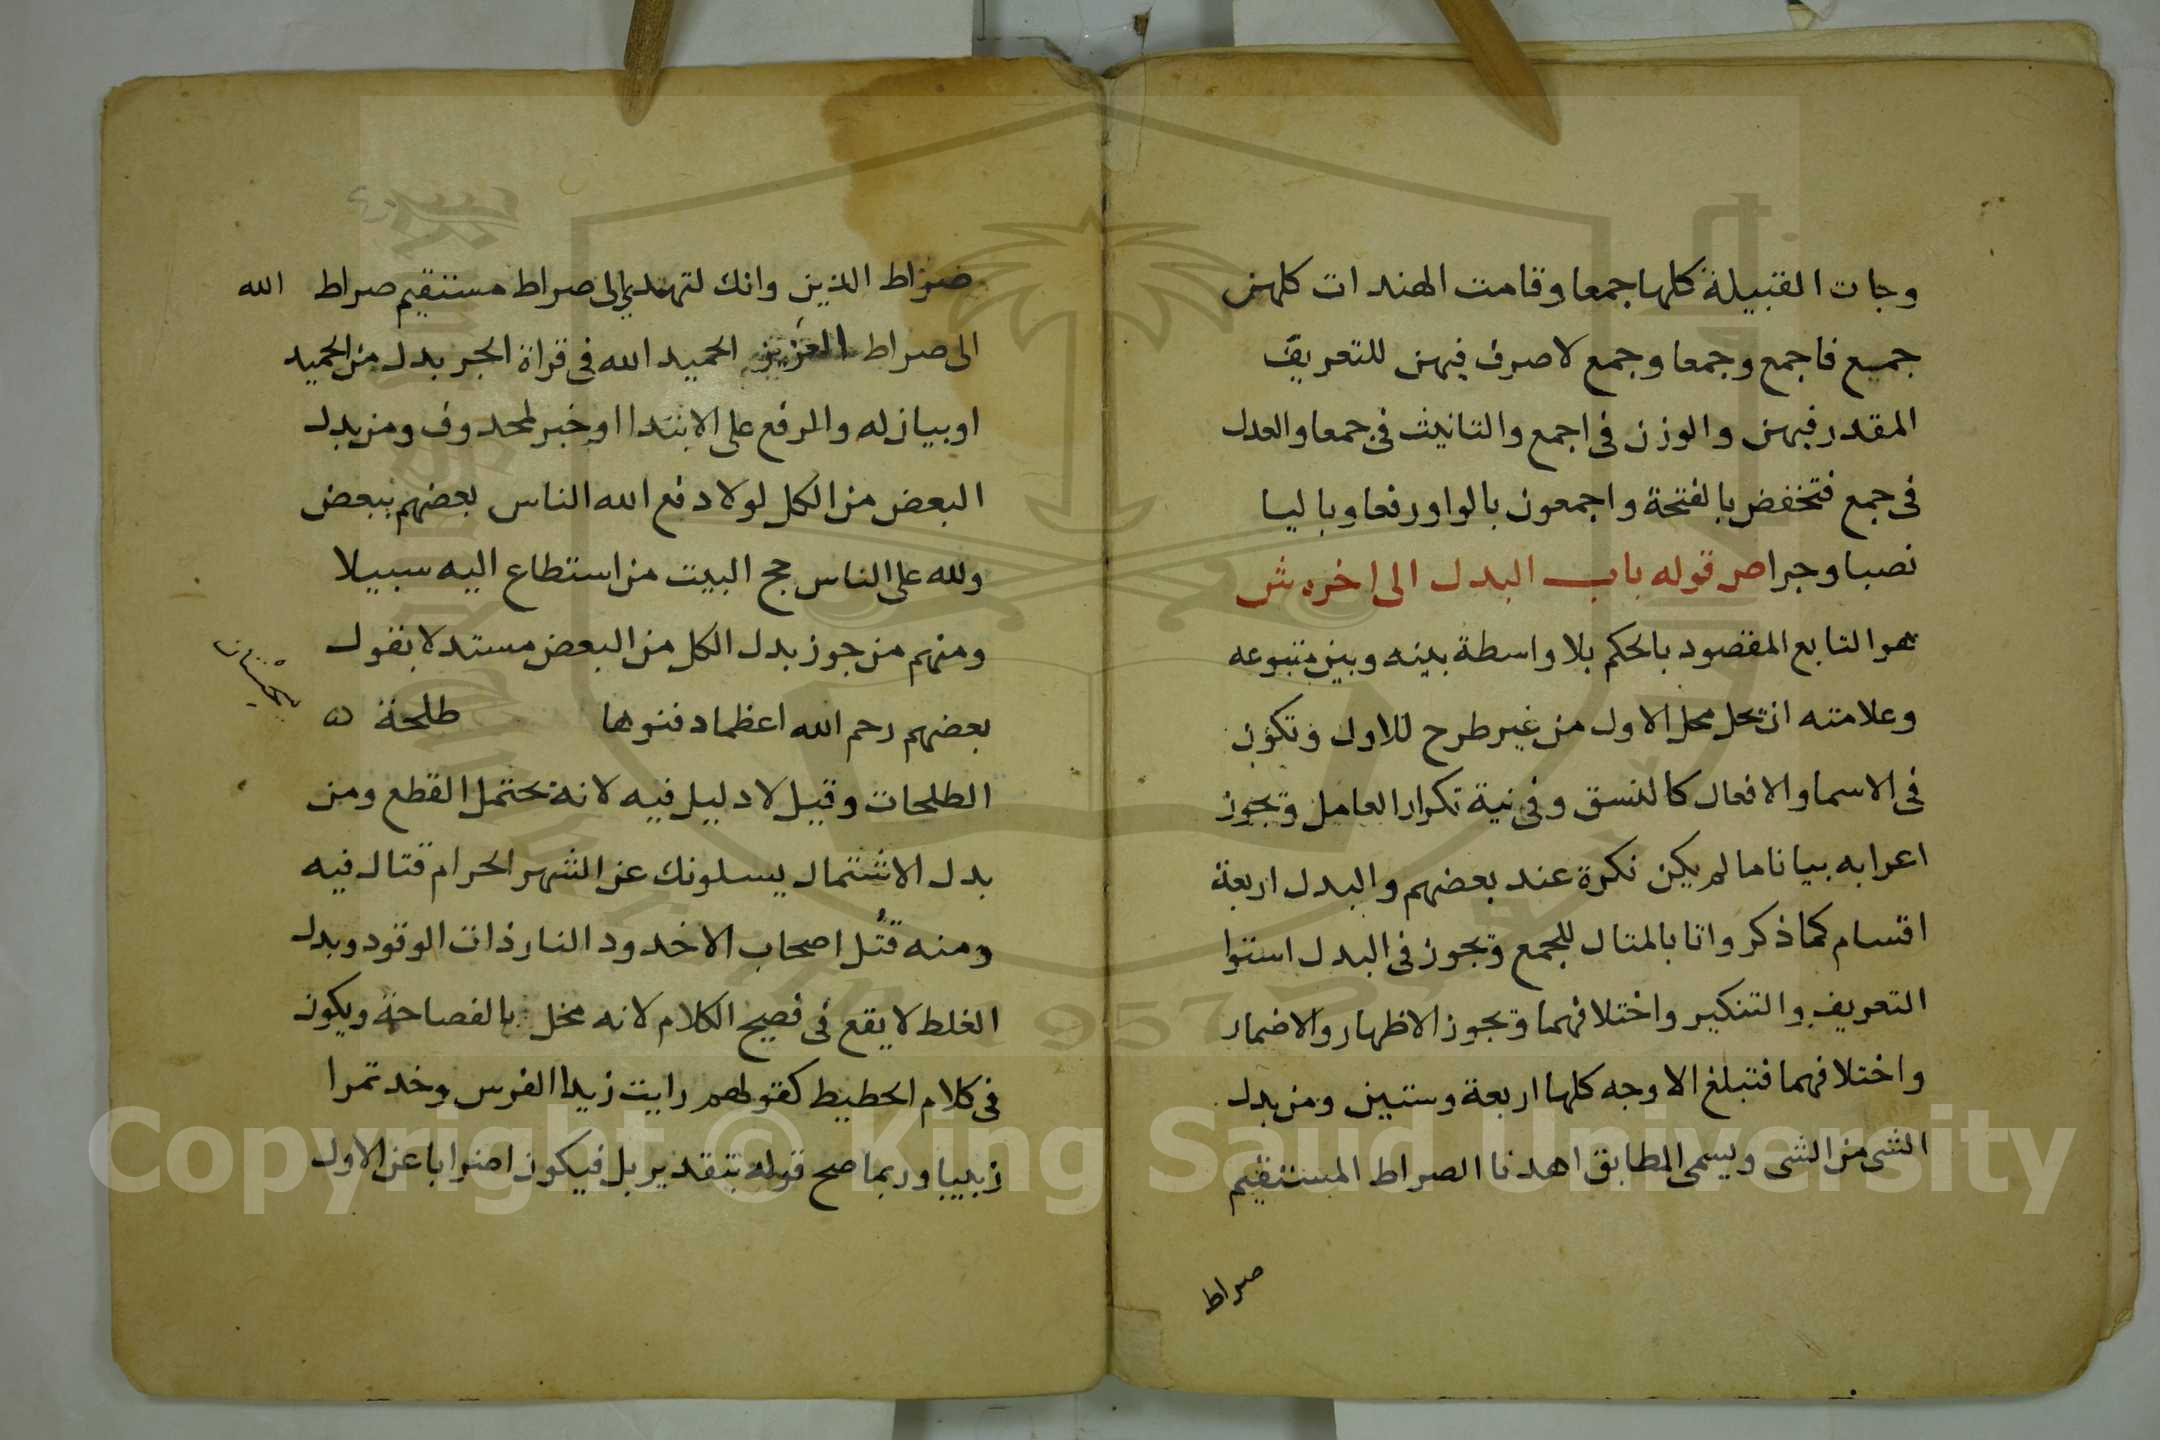 وجات القبيلة كلها جمعا وقامت الهندات كلهن
جميع فاجمع وجمعا وجمع لا صرف فيهن للتعريف
المقدر فيهن والوزن في اجمع والتانيث في جمعا والعدل
في جمع فتخفض بالفتحة واجمعون بالواو رفعا وباليا
نصبا وجرا ص قوله باب البدل الى اخره ش
هو التابع المقصود بالحكم بلا واسطة بينه وبين متبوعه
وعلامته ان تحل محل الاول من غير طرح للاول وتكون
في الاسما والافعال كالنسق وفي نية تكرار العامل وتجوز
اعرابه بيانا ما لم يكن نكرة عند بعضهم والبدل اربعة
اقسام كما ذكر واتا بالمثال للجمع وتجوز في البدل استوا
التعريف والتنكير واختلافهما وتجوز الاظهار والاضمار
واختلافهما فتبلغ الاوجه كلها اربعة وستين ومن بدل
الشي من الشي ويسمى المطابق اهدنا الصراط المستقيم
صراط
صراط الذين وانك لتهدي الى صراط مستقيم صراط الله
الى صراط العزيز الحميد الله في قراة الجر بدل من الحميد
او بيان له والرفع على الابتدا او خبر لمحذوف ومن بدل
البعض من الكل لولا دفع الله الناس بعضهم ببعض
ولله على الناس حج البيت من استطاع اليه سبيلا
ومنهم من جوز بدل الكل من البعض مستدلا بقول
بعضهم رحم الله اعظما دفنوها طلحة
الطلحات وقيل لا دليل فيه لانه يحتمل القطع ومن
بدل الاشتمال يسلونك عن الشهر الحرام قتال فيه
ومنه قتل اصحاب الاخدود النار ذات الوقود وبدل
الغلط لا يقع في فصيح الكلام لانه مخل بالفصاحة ويكون
في كلام الحطيط كقولهم رايت زيدا الفرس وخذ تمرا
زبيبا وربما صح قوله بتقدير بل فيكون اضرابا عن الاول
Copyright © King Saud University
1957